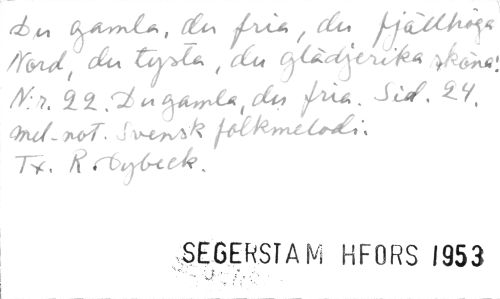 Du gamla, du fria, du fjällhöga
Nord, du tysta, du glädjerika sköna!
N:r. 22. Du gamla, du fria. Sid. 24.
mel-not. Svensk folkmelodi.
Tx. R. Dybeck.
SEGERSTAM HFORS 1953